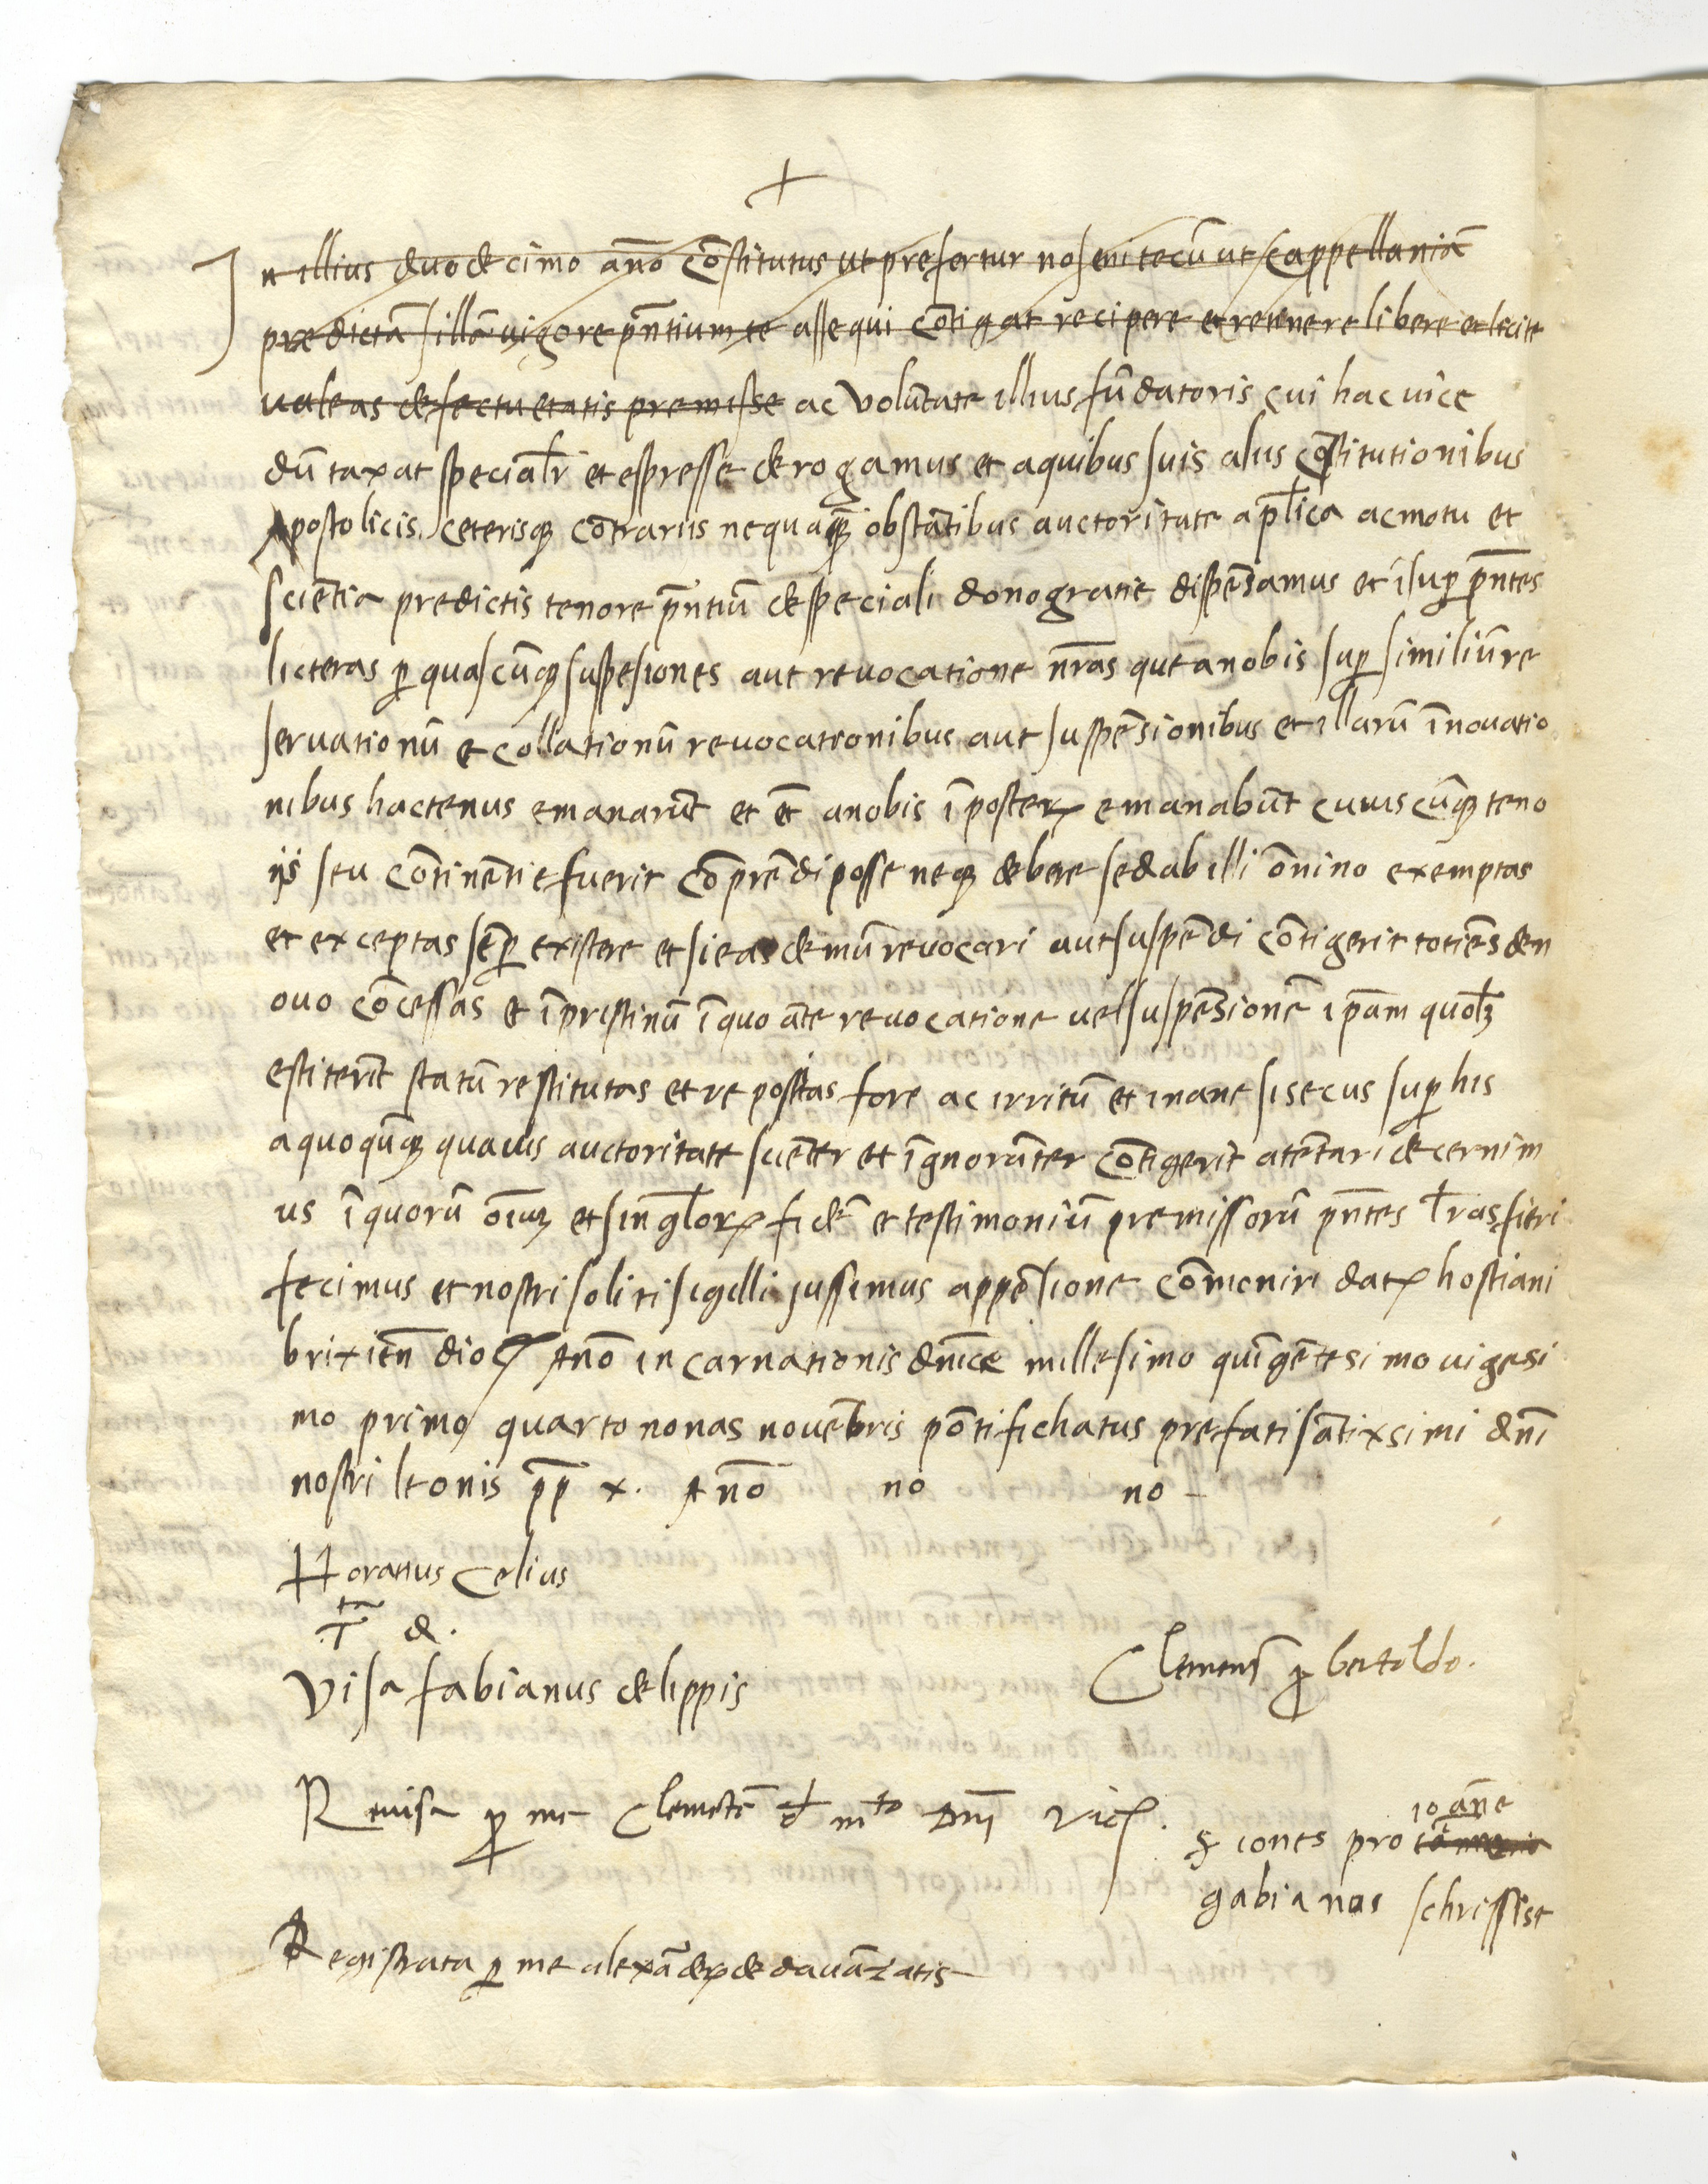 +
In illius duodecimo año cōstitutus ut prefertur nos eni tecū ut cappellaniā
predictā si illā uigore pñtium te assequi cōtigat recipere et retenere libere et licite
ualeas defectu etatis premisse ac volūtate illius fūdatoris cui hac uice
dūtaxat specialr̄ et espresse derogamus et aquibus suis alus cōstitutionibus
Apostolicis ceterisqȝ cōtrarus nequaqȝ obstātibus auctoritate ap̄lica acmotu et
sciētia predictis tenore p̄ntiū despeciali donogratie dispēsamus et īsuꝑ p̄ntes
licteras ꝑ quascūqȝ suspesiones aut reuocatione n̄ras qut anobis suꝑ similiū re
seruationū et collationū reuocationibus aut suspēsionibus et illarū īnouatio
nibus hactenus emanarūt et et̄ anobis īposterꝝ emanabūt cuiuscūqȝ teno
ijs seu cōtinētie fuerit cōprēdi posse neqȝ debere sed ab illi ōnino exemptas
et exceptas sēꝑ existere et si eas demū reuocari aut suspēdi cōtigerit totiēs den
ouo cōcessas et īpristinū īquo āte reuocatione uel suspēsionē ip̄am quol̄ȝ
estiterīt statū restitutas et repositas fore ac irritū et inane si secus suꝑ his
aquoqūqȝ quauis auctoritate sciēter et īgnorāter cōtigerit atētari decernim
us īquorū oīuȝ et singl̄orꝝ fidē et testimoniū premissorū p̄ntes l̄ras fieri
fecimus et nostri soliti sigilli jussimus appēsione cōmoniri datꝝ hostiani
brixieñ dioc̄ Año incarnationis dn̄ice millesimo quīgētesimo uigesi
mo primo quarto nonas nouēbris pōtifichatus prefati sātixsimi dn̄i
nostri leonis pp̄ x. Año no no
Horanus Celius
T̄ta d.
Visa fabianus delippis
Clemens ꝓ bertoldo.
Reuisa ꝑ me Clemētē d mto Dn̄i Vicꝝ.
ioāne
§ iones pro
gabianus schrissist
Registrata ꝑ me alexādꝝ de dauāzatis